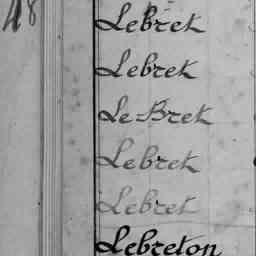 48
Lebret
Lebret
Le-Bret
Lebret
Lebret
Lebreton